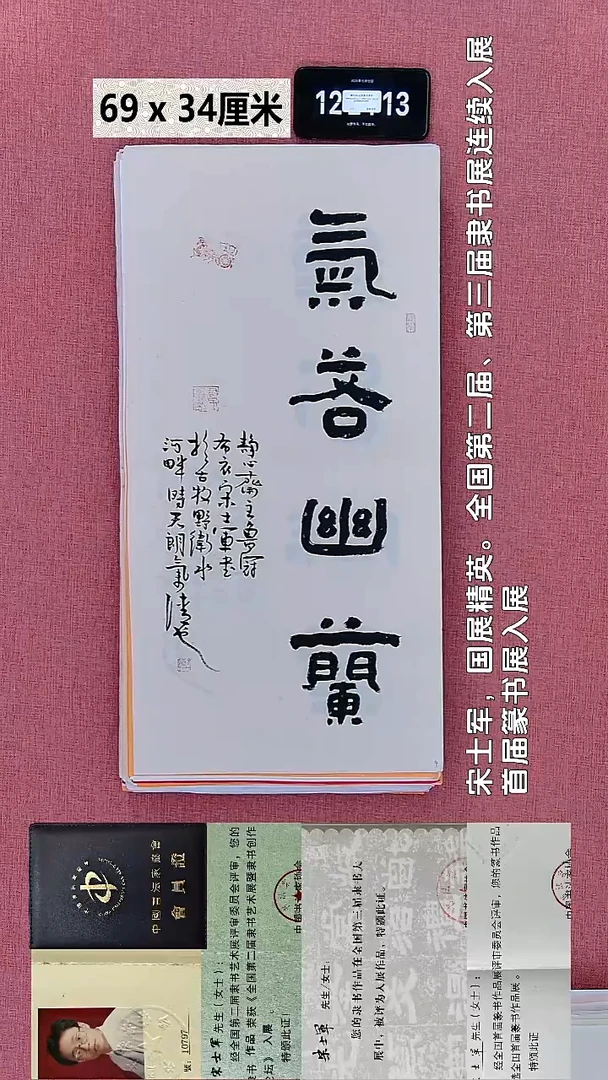 69 x 34厘米
12
13
氣若幽蘭
靜心齋主魯冠
布衣宋士軍書
於古牧野衛水
河畔時天朗氣清也
宋士军，国展精英。全国第二届、第三届隶书展连续入展
首届篆书展入展
中國書法家協會
會員證
號: 10797
宋士军 先生(女士):
经全国第二届隶书艺术展评审委员会评审，您的
书 作品 荣获《全国第二届隶书艺术展暨隶书创作
坛》入展。
特颁此证!
宋士军 先生/女士:
您的隶书作品在全国第三届隶书大
展中，被评为入展作品，特颁此证。
士军 先生(女士):
经全国首届篆书作品展评审委员会评审，您的篆书作品
选全国首届篆书作品展。
特颁此证